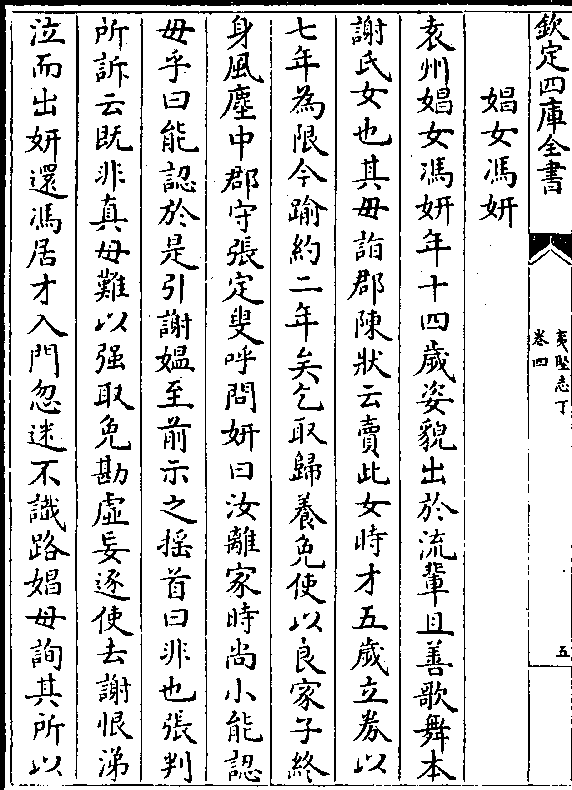 欽定四庫全書
夷堅志丁
卷四
五
娼女馮妍
袁州娼女馮妍年十四歲姿貌出於流輩且善歌舞本
謝氏女也其毋詣郡陳狀云賣此女時才五歲立券以
七年為限今踰約二年矣乞取歸養免使以良家子終
身風塵中郡守張定叟呼問妍曰汝離家時尚小能認
毋乎曰能認於是引謝媼至前示之揺首曰非也張判
所訴云既非真毋難以强取免勘虛妄逐使去謝恨涕
泣而出妍還馮居才入門忽迷不識路娼毋詢其所以